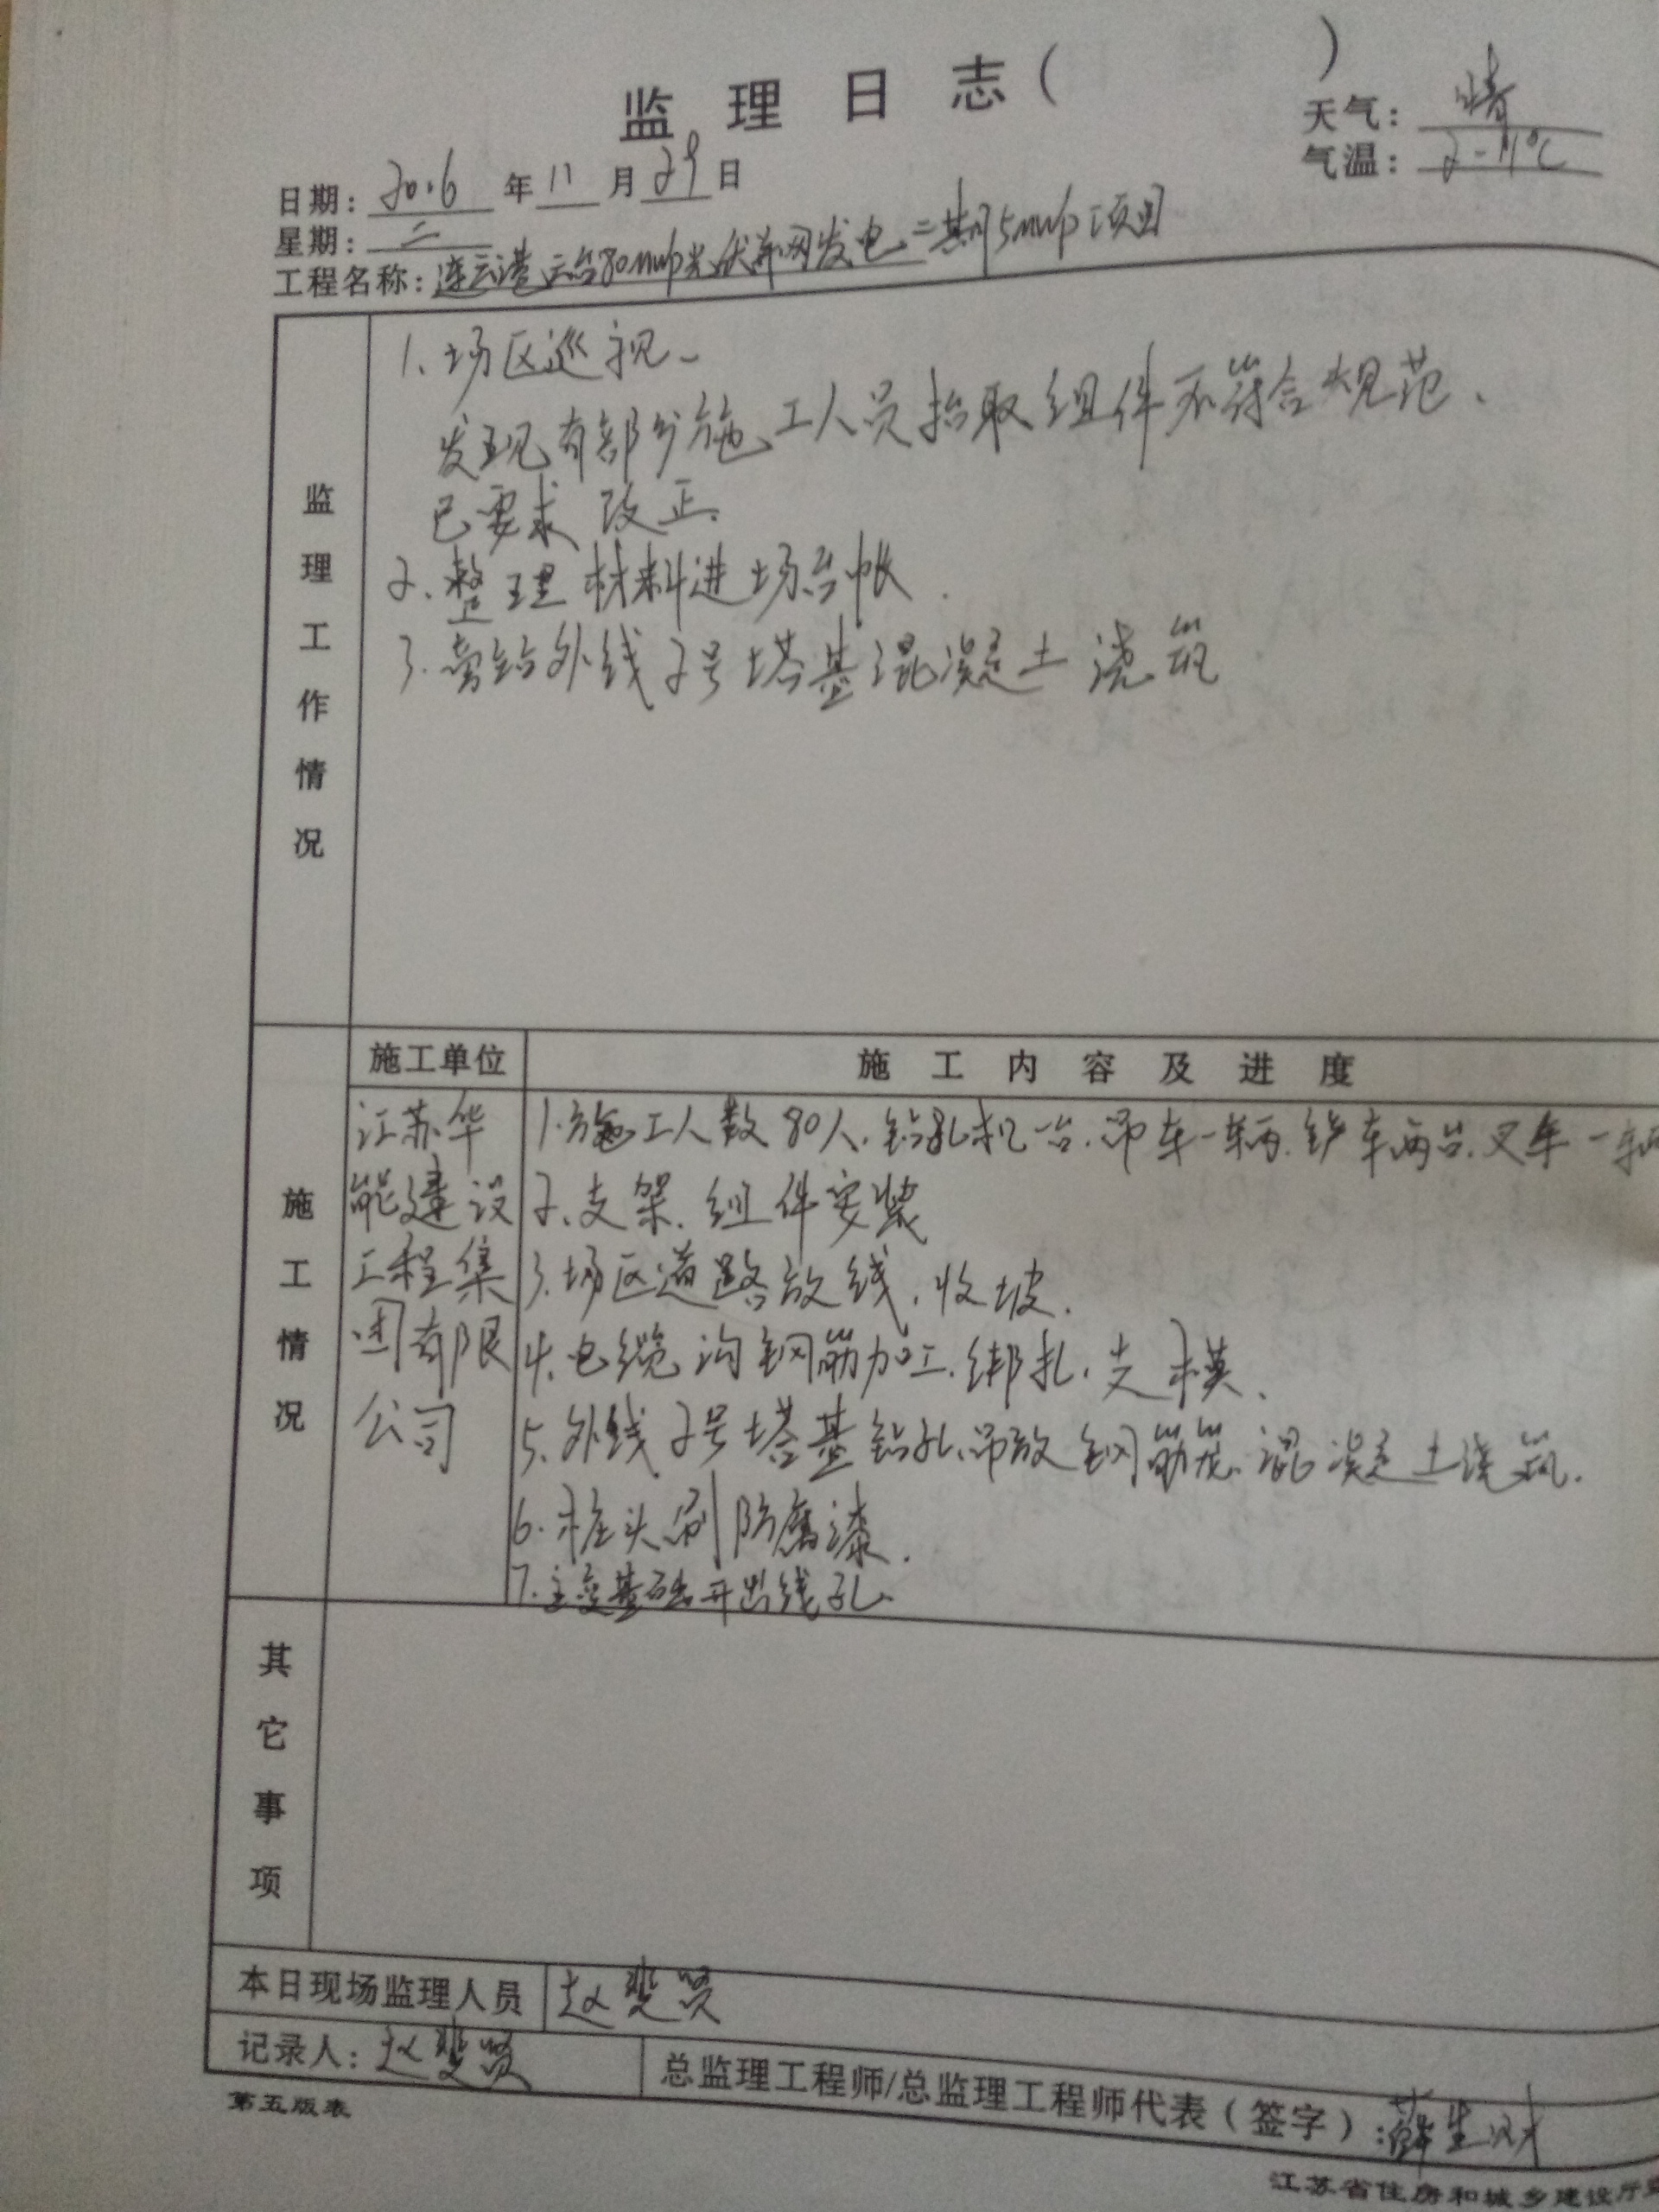 监理日志（ ）
天气：晴
气温：2-11℃
日期：2016年11月29日
星期：二
工程名称：连云港云台80mwp光伏并网发电二期5mwp项目
监理工作情况
1、场区巡视、
发现有部分施工人员抬取组件不符合规范、
已要求改正.
2、整理材料进场台帐.
3.旁站外线2号塔基混凝土浇筑.
施工情况
施工单位
施工内容及进度
江苏华
能建设
工程集
团有限
公司
1.施工人数80人.钻孔机一台.吊车一辆.铲车两台.叉车一辆
2、支架、组件安装
3.场区道路放线、收坡.
4.电缆沟钢筋加工.绑扎.支模、
5.外线2号塔基钻孔.吊放钢筋笼.混凝土浇筑.
6.桩头刷防腐漆.
7.主变基础开出线孔.
其它事项
本日现场监理人员 赵斐贤
记录人：赵斐贤
总监理工程师/总监理工程师代表（签字）：薛生
第五版表
江苏省住房和城乡建设厅